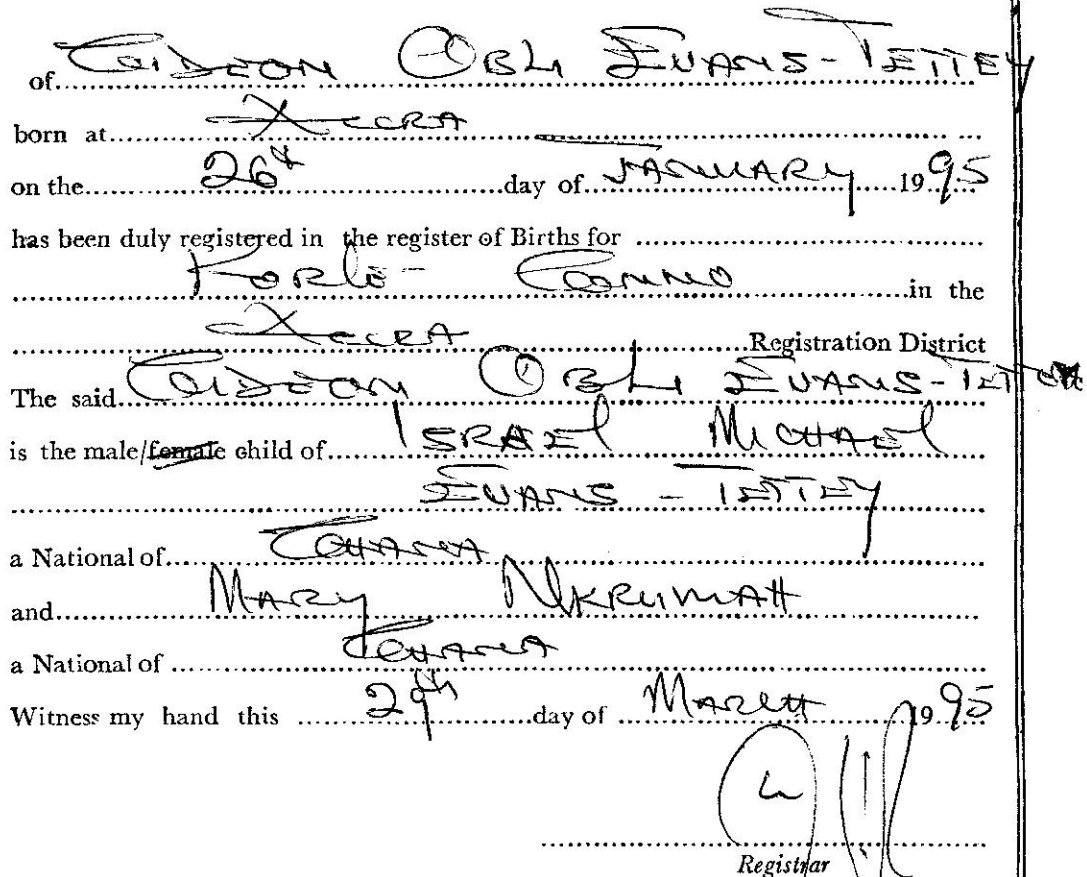 of GIDEON OBLI EVANS-TETTEY
born at ACCRA
on the 26th day of JANUARY 1995
has been duly registered in the register of Births for
KORLE- GONNO in the
ACCRA Registration District
The said GIDEON OBLI EVANS-TETTEY
is the male/female child of ISRAEL MICHAEL
EVANS - TETTEY
a National of GHANA
and MARY NKRUMAH
a National of GHANA
Witness my hand this 29th day of MARCH 1995
Registrar